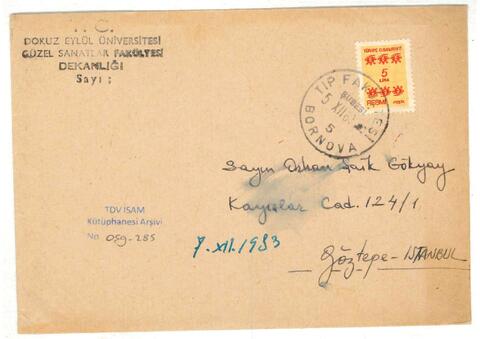 T.C.
DOKUZ EYLÜL ÜNİVERSİTESİ
GÜZEL SANATLAR FAKÜLTESİ
DEKANLIĞI
Sayı :
TÜRKİYE CUMHURİYETİ
5
LİRA
RESMİ
TIP FAKÜLTESİ
ŞUBESİ
5 XII
5
BORNOVA
Sayın Orhan Şaik Gökyay
Kayışlar Cad. 124/1
Göztepe - İSTANBUL
7.XII.1983
TDV İSAM
Kütüphanesi Arşivi
No 0şg-285